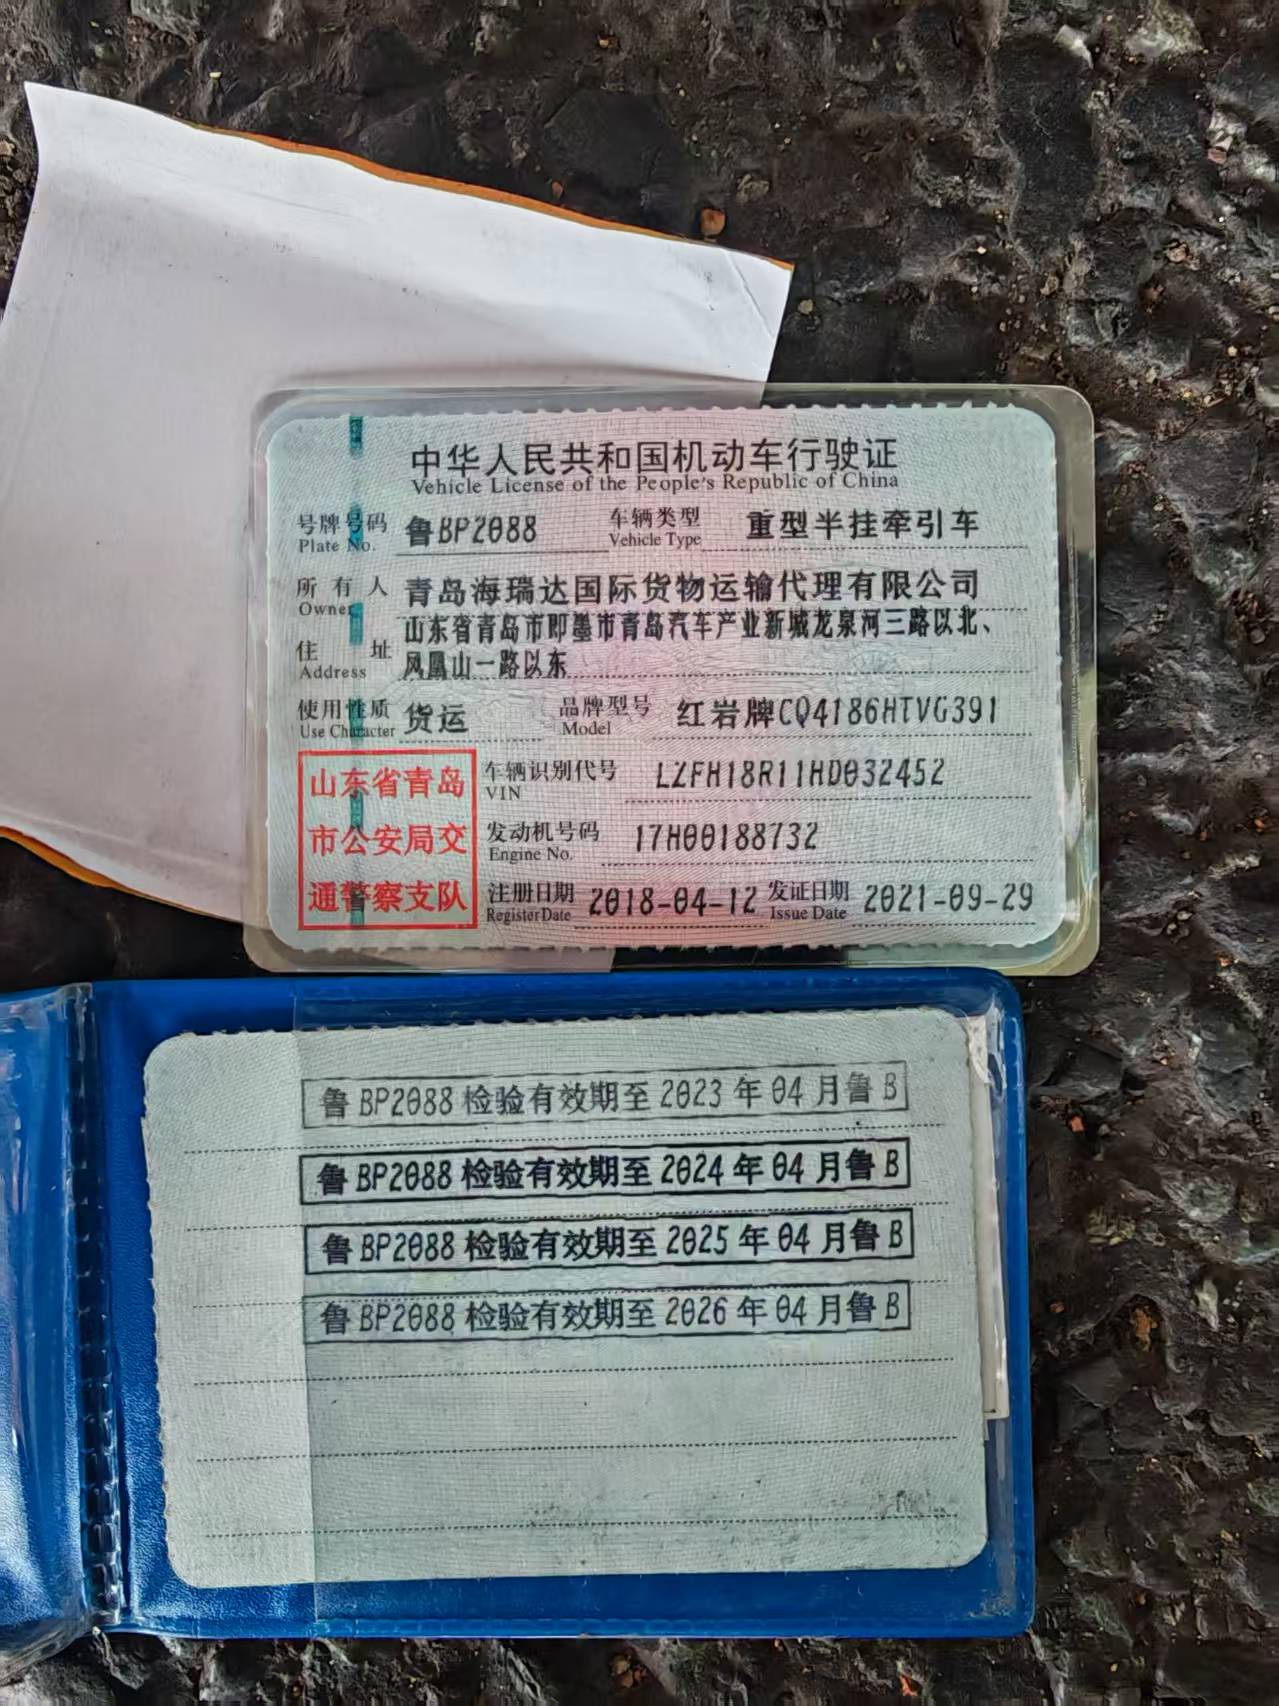 中华人民共和国机动车行驶证
Vehicle License of the People's Republic of China
号牌号码 鲁BP2088 车辆类型 重型半挂牵引车
Plate No. Vehicle Type
所有人 青岛海瑞达国际货物运输代理有限公司
Owner
住址 山东省青岛市即墨市青岛汽车产业新城龙泉河三路以北、
Address 凤凰山一路以东
使用性质 货运 品牌型号 红岩牌CQ4186HTVG391
Use Character Model
山东省青岛
市公安局交
通警察支队
车辆识别代号 LZFH18R11HD032452
VIN
发动机号码 17H00188732
Engine No.
注册日期 2018-04-12 发证日期 2021-09-29
Register Date Issue Date
鲁BP2088检验有效期至2023年04月鲁B
鲁BP2088检验有效期至2024年04月鲁B
鲁BP2088检验有效期至2025年04月鲁B
鲁BP2088检验有效期至2026年04月鲁B